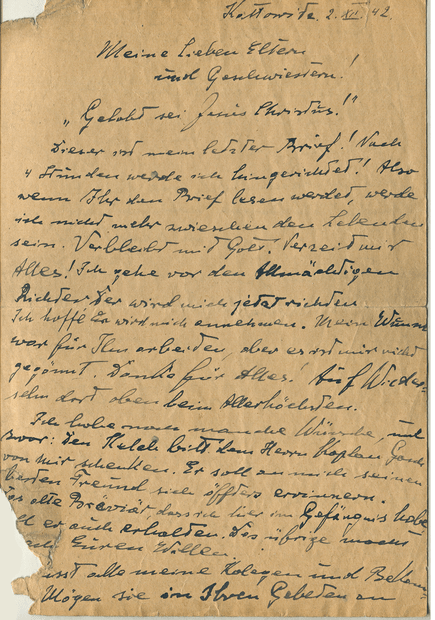 Kattowitz 2. XII. 42.
Meine lieben Eltern
und Geschwiestern!
"Gelobt sei Jesus Christus!"
Dieser ist mein letzter Brief! Nach
4 Stunden werde ich hingerichtet! Also
wenn Ihr den Brief lesen werdet, werde
ich nicht mehr zwischen den Lebenden
sein. Verbleibt mit Gott! Verzeiht mir
Alles! Ich gehe vor den Allmächtigen
Richter der wird mich jetzt richten.
Ich hoffe Er wird mich annehmen. Mein
war für Ihm arbeiten, aber es ist mir nicht
gegönnt. Danke für Alles! Auf Wieder-
sehn dort oben beim Allerhöchsten.
Ich habe noch manche Wünsche, und
zwar: den Kelch bitt dem Herrn Kaplan
von mir schenken. Er soll an mich seinen
Freund sich öffters erinnern.
alte Breviär, dass ich hier im Gefängnis habe
er auch erhalten. Das übrige macht
Euren Willen.
alle meine Kolegen und
Mögen sie in Ihren Gebeten an